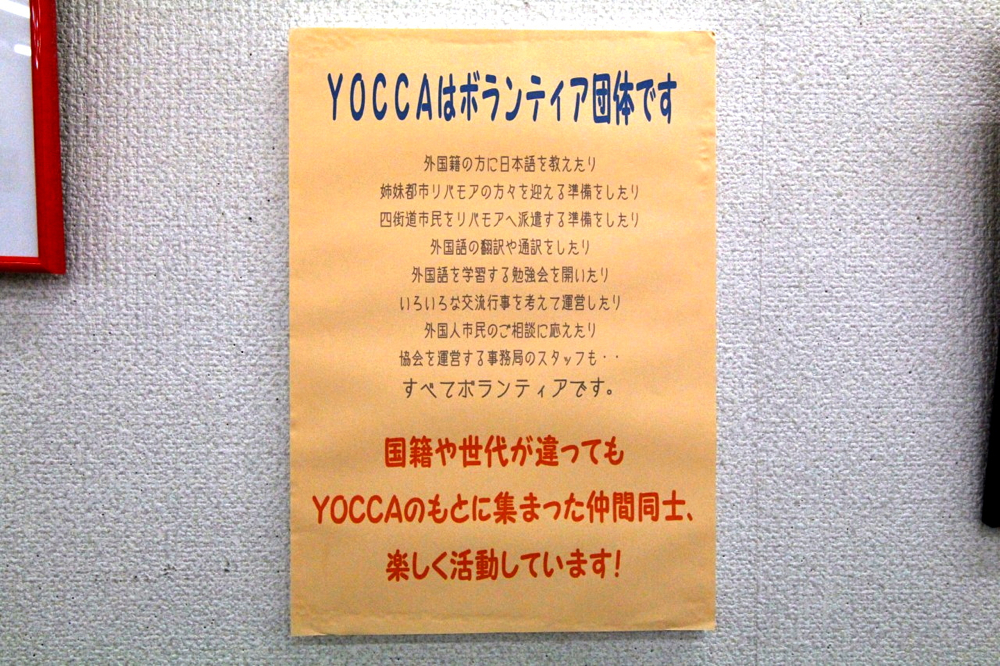 YOCCAはボランティア団体です
外国籍の方に日本語を教えたり
姉妹都市リバモアの方々を迎える準備をしたり
四街道市民をリバモアへ派遣する準備をしたり
外国語の翻訳や通訳をしたり
外国語を学習する勉強会を開いたり
いろいろな交流行事を考えて運営したり
外国人市民のご相談に応えたり
協会を運営する事務局のスタッフも・・
すべてボランティアです。
国籍や世代が違っても
YOCCAのもとに集まった仲間同士、
楽しく活動しています!